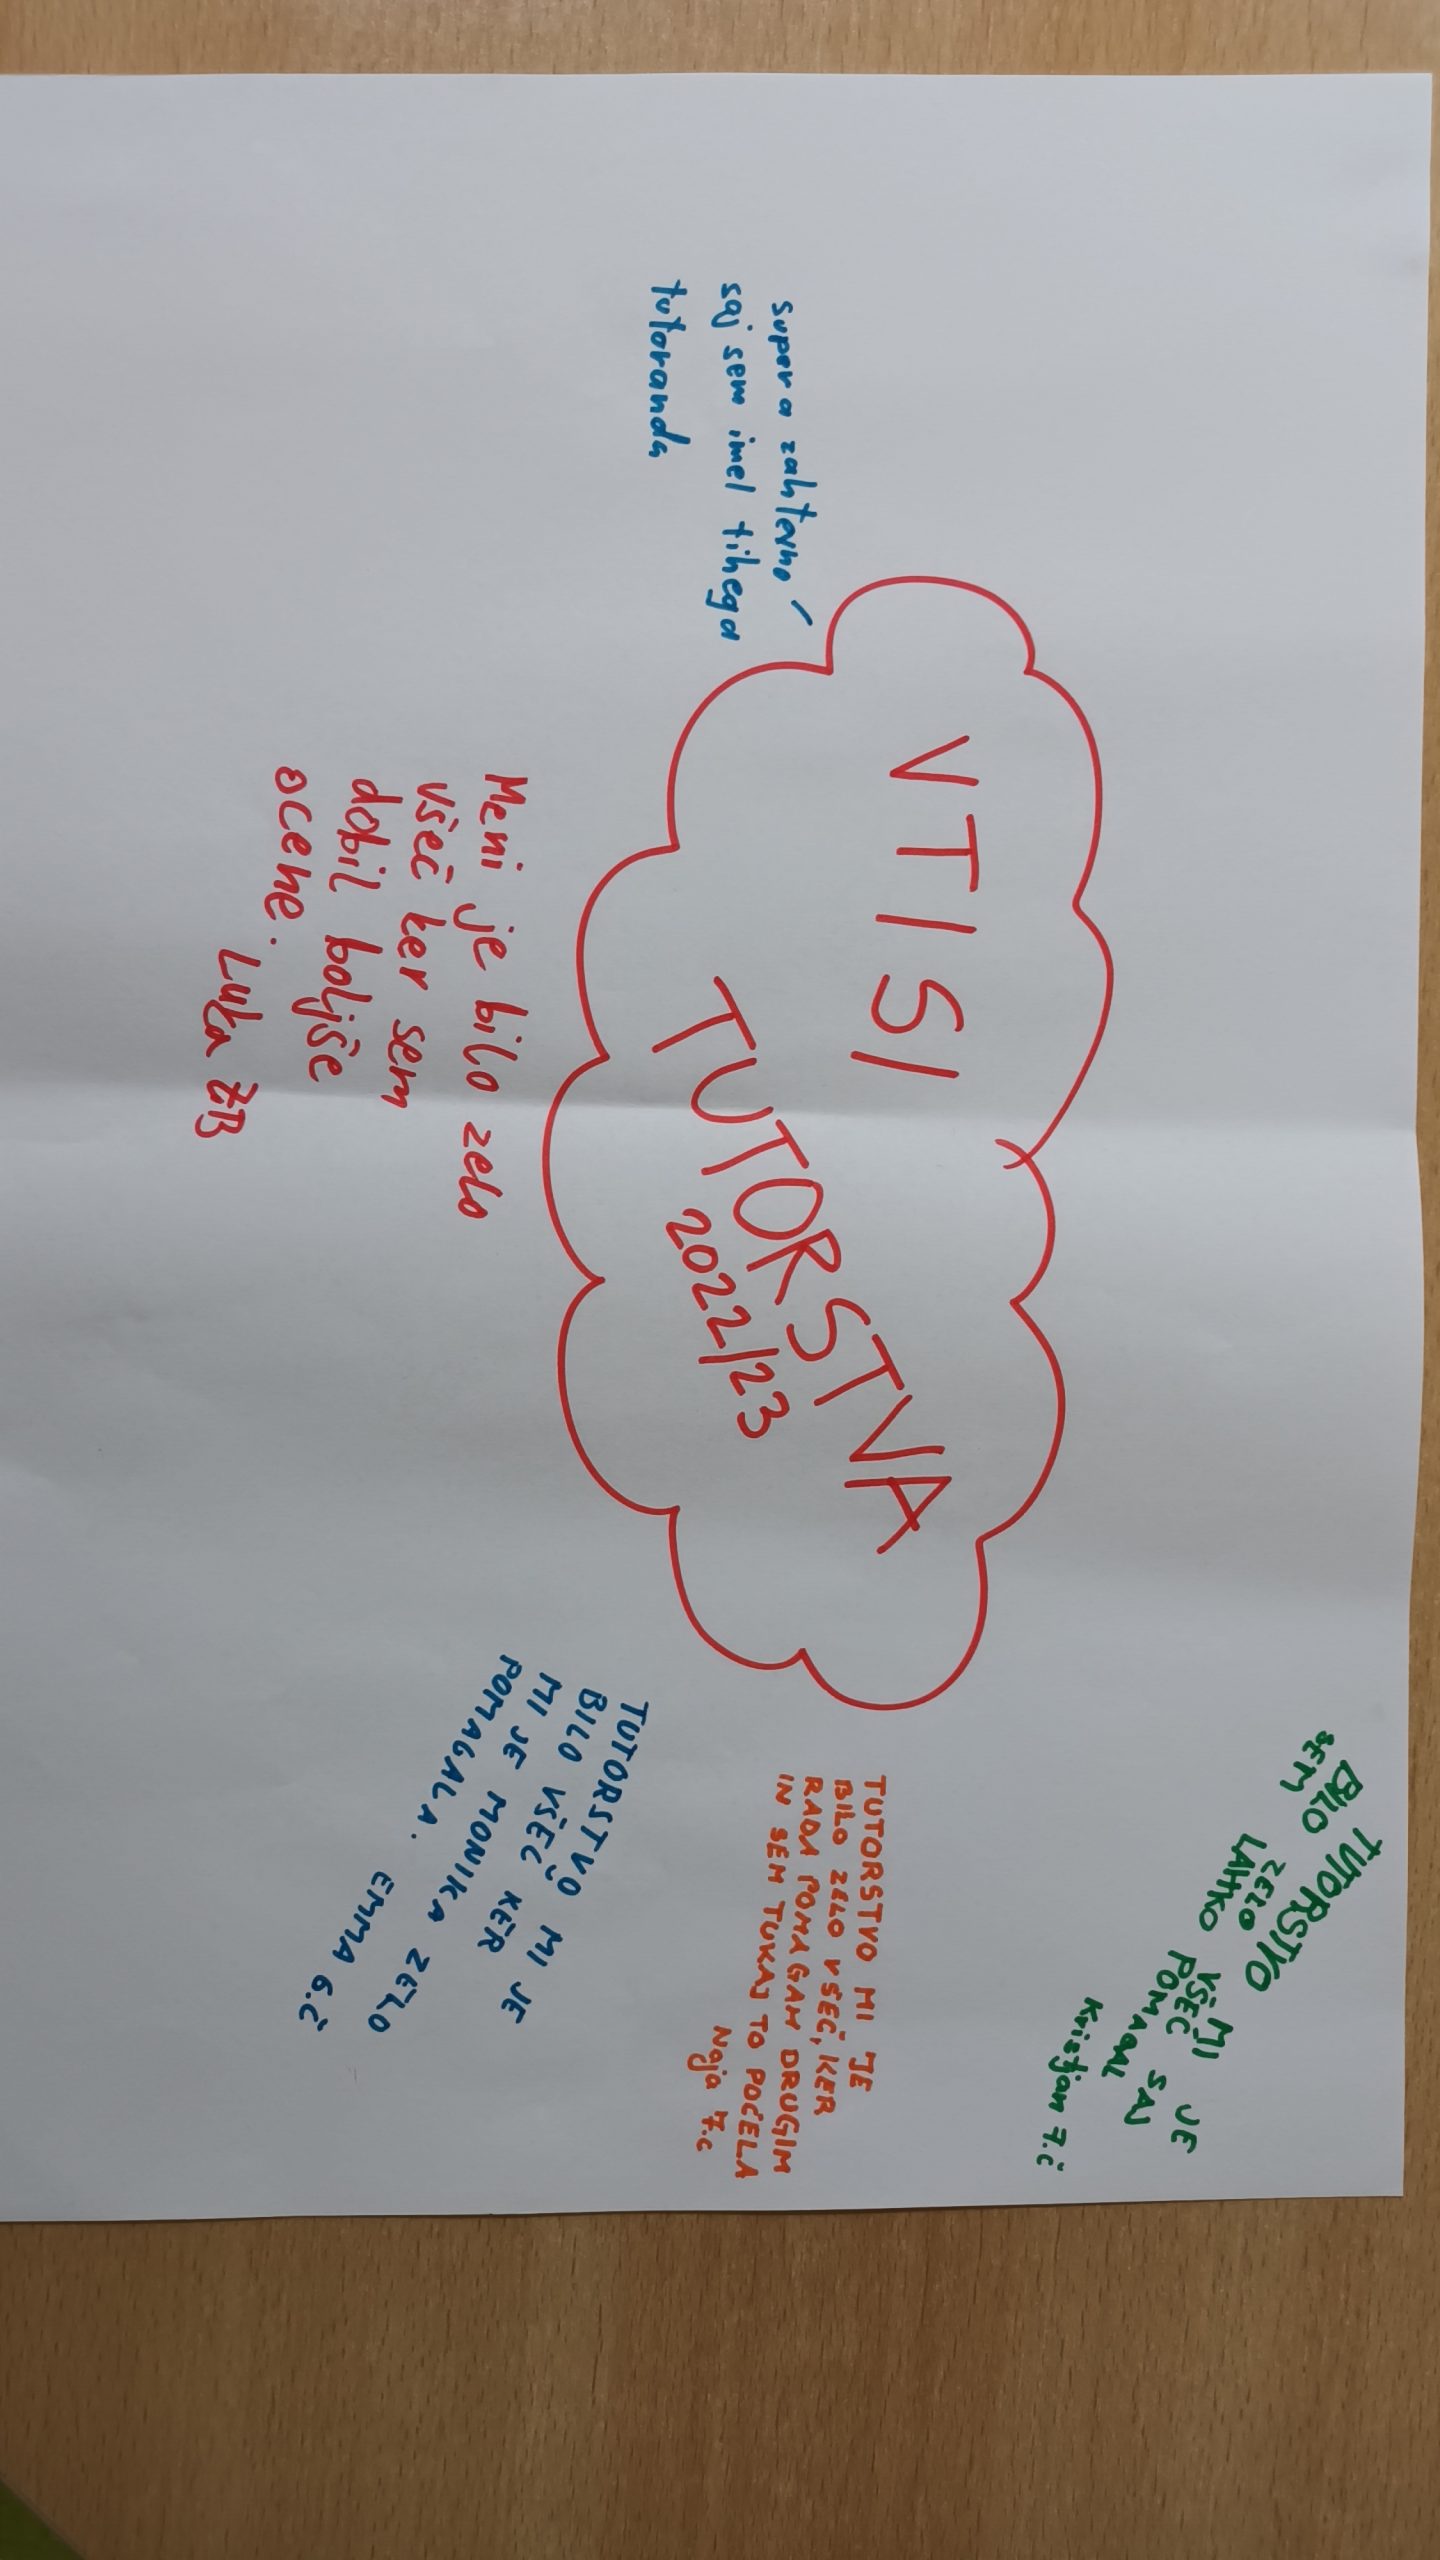 VTISI
TUTORSTVA
2022/23
super a zahtevno
saj sem imel tihega
tutoranda
Meni je bilo zelo
všeč ker sem
dobil boljše
ocene. Luka
TUTORSTVO MI JE
BILO VŠEČ KER
MI JE MONIKA ZELO
POMAGALA. EMMA 6.č
TUTORSTVO MI JE
BILO ZELO VŠEČ, KER
RADA POMAGAM DRUGIM
IN SEM TUKAJ TO POČELA
Naja 7.c
TUTORSTVO MI JE
BILO ZELO VŠEČ SAJ
SEM LAHKO POMAGAL
Kristjan 7.č